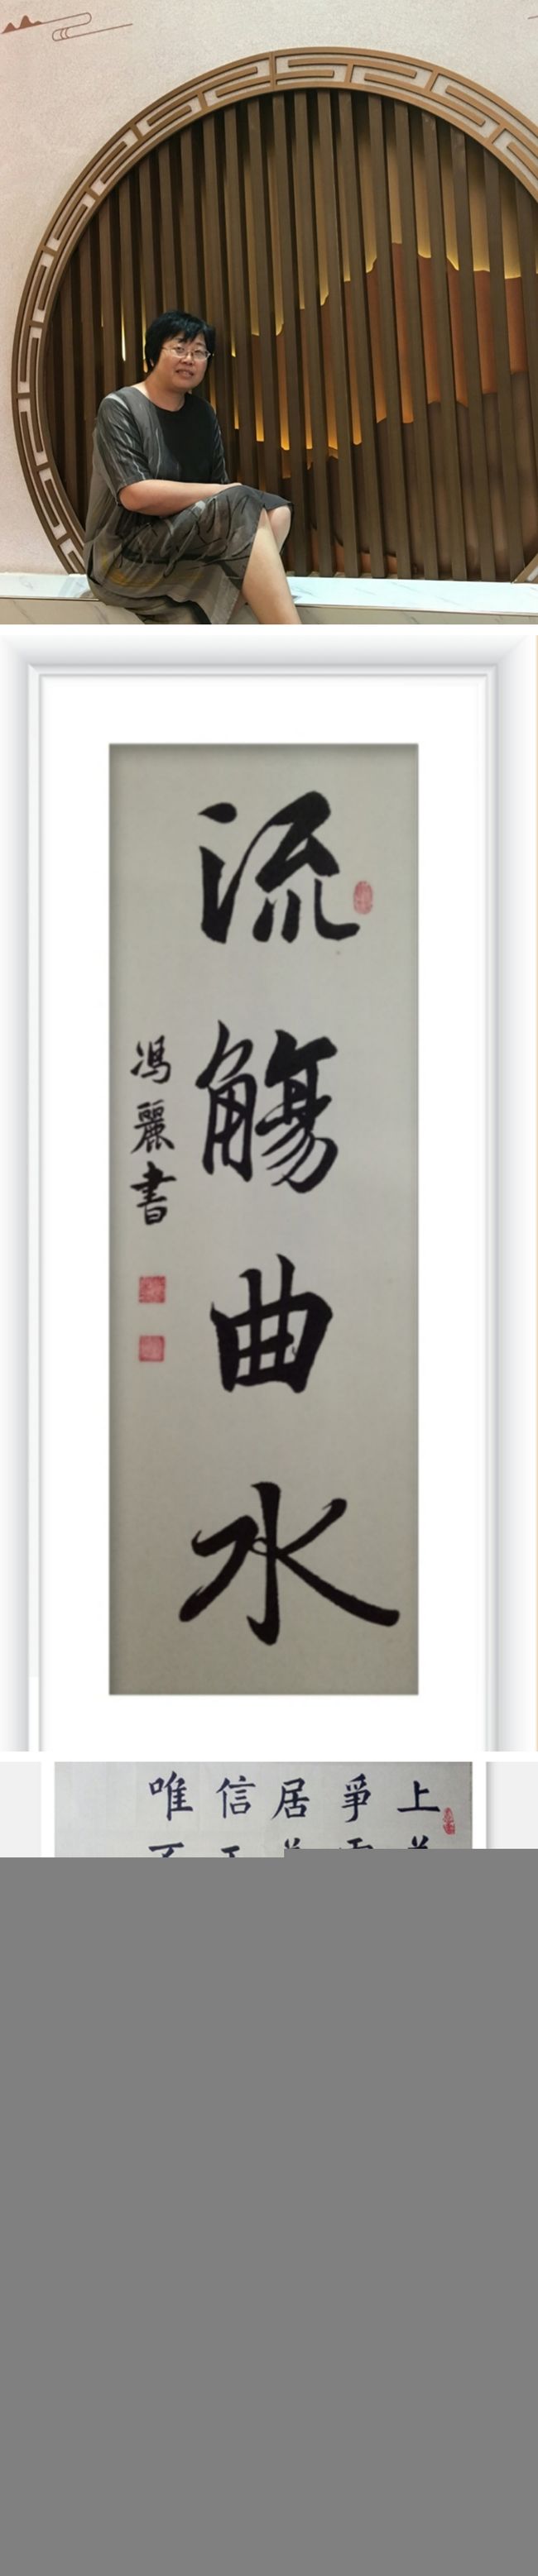 流觴曲水
馮麗書
上
爭
居
信
唯